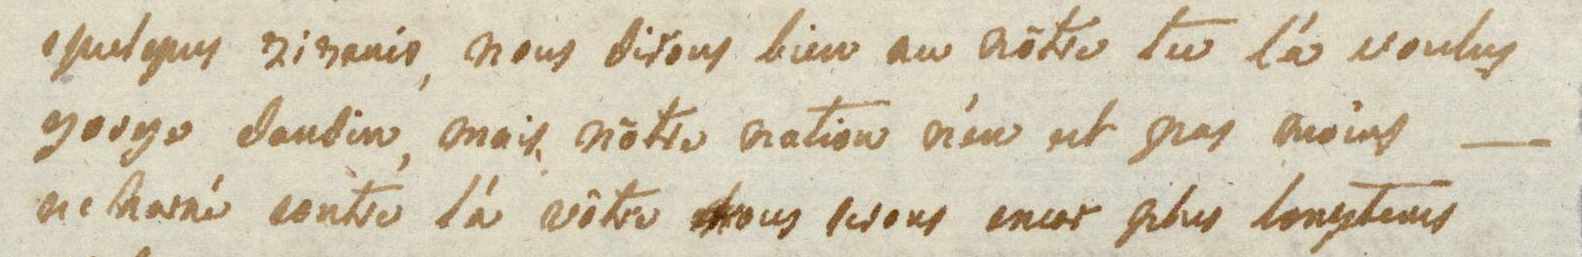 quelques zizanie, nous dirons bien au nôtre tu l'a voulus
george dandin, mais nôtre nation n'en est pas moins —
acharné contre la vôtre nous serons encor plus longtems